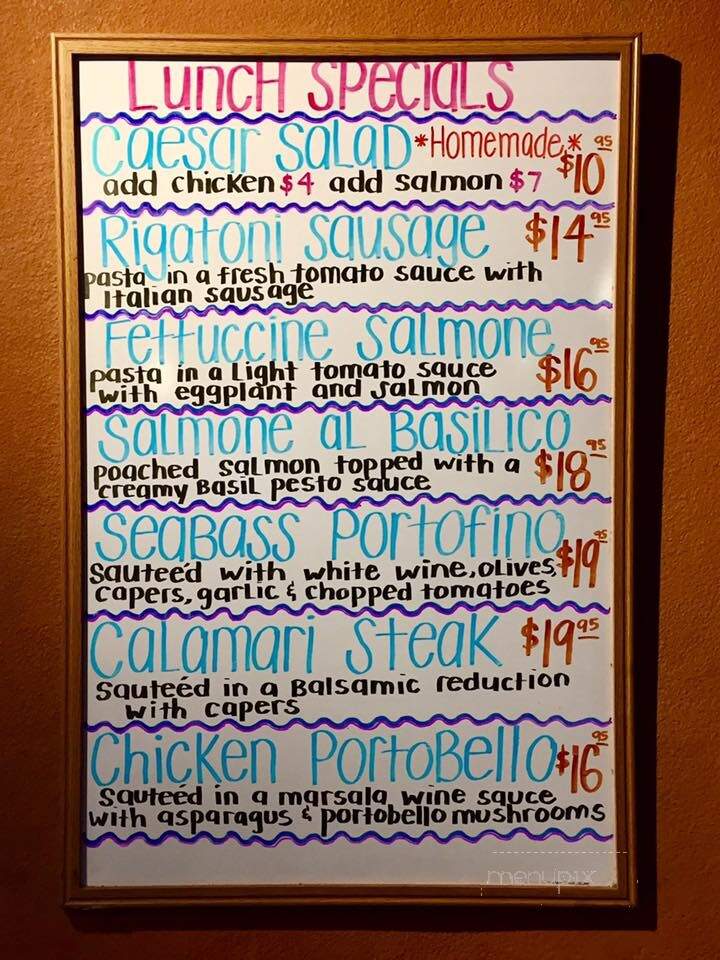 Lunch Specials
Caesar Salad *Homemade* $10 95
add chicken $4 add salmon $7
Rigatoni Sausage $14 95
pasta in a fresh tomato sauce with
Italian sausage
Fettuccine Salmone $16 95
pasta in a Light tomato sauce
with eggplant and salmon
Salmone al Basilico $18 95
poached salmon topped with a
creamy Basil pesto sauce
Seabass Portofino $19 95
Sauteéd with white wine, olives,
capers, garlic & chopped tomatoes
Calamari Steak $19 95
Sauteéd in a Balsamic reduction
with capers
Chicken Portobello $16 95
Sauteéd in a marsala wine sauce
with asparagus & portobello mushrooms
menupix